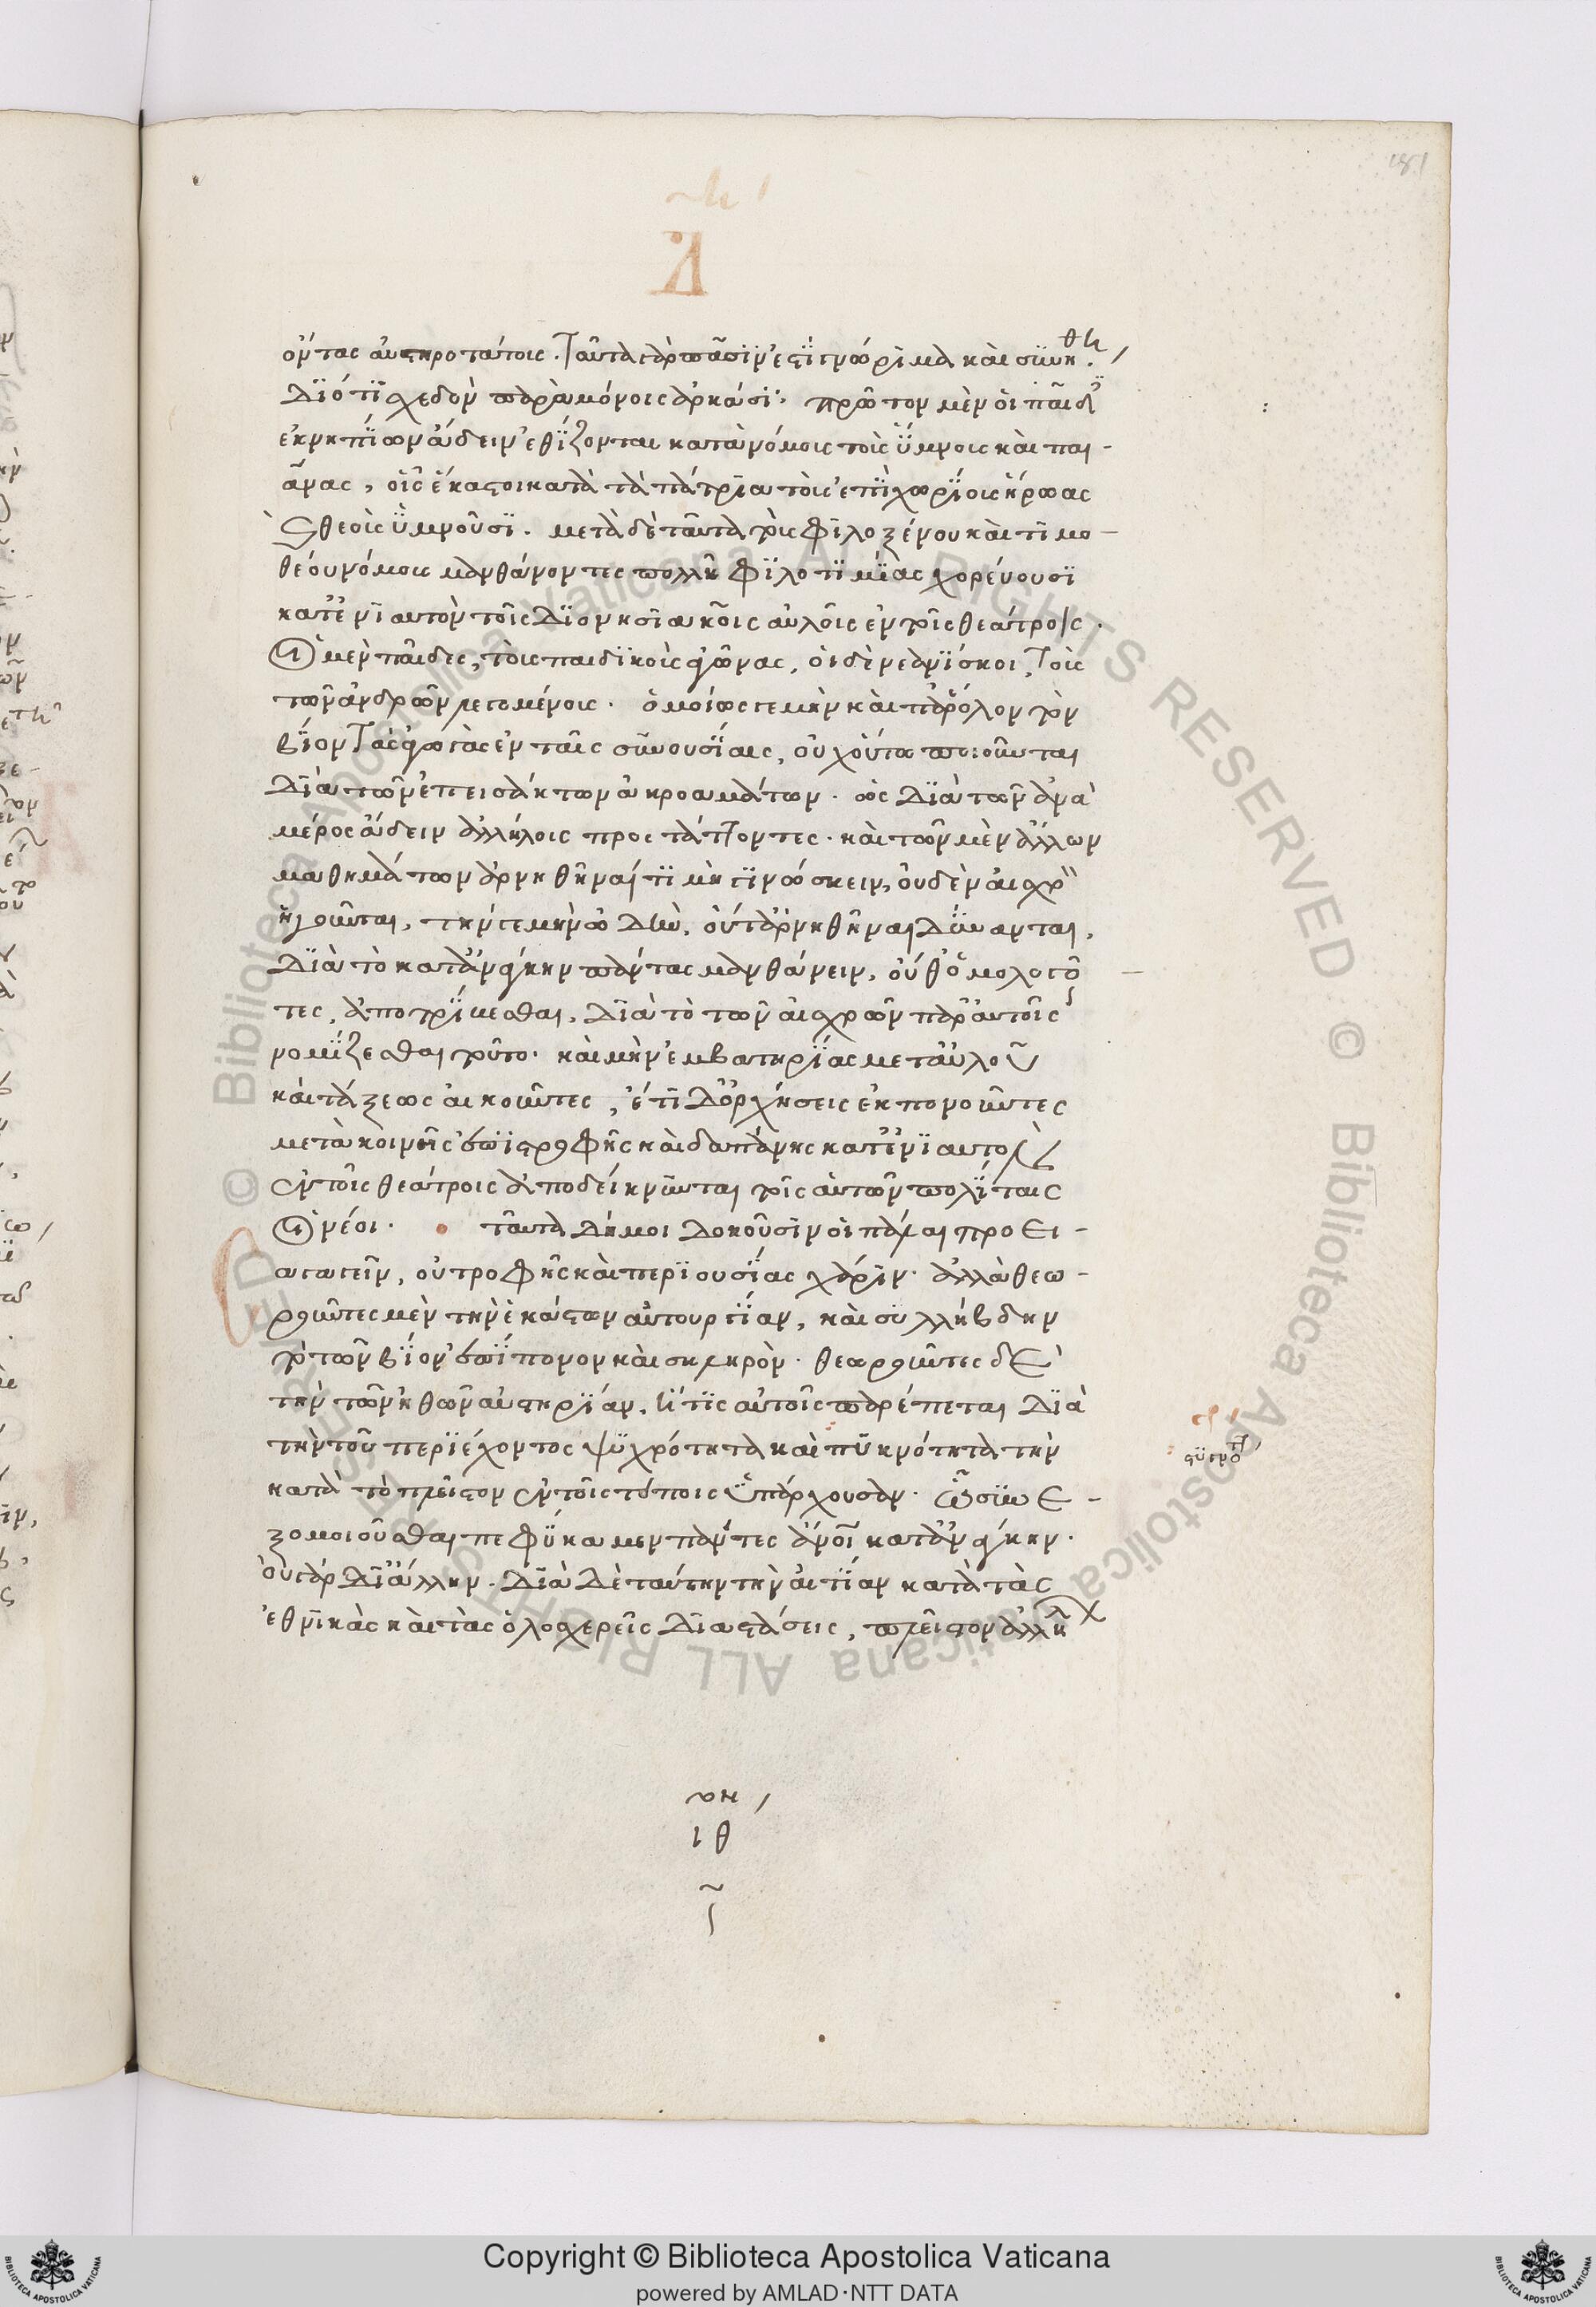 181
Δ
ὄντας αὐστηροτάτοις. Ταῦτα γὰρ πᾶσϊν ἐστϊ γνώρϊμα καὶ σϋνήθη
Δϊότϊ σχεδὸν παρὰ μόνοις ἀρκάσϊ· πρῶτον μὲν οἱ παῖδες
ἐκ νηπϊων ἄδειν ἐθϊζονται κατὰ νόμοις τοὶς ὕμνοις καὶ παι-
ᾶνας, οἷς ἕκαστοι κατὰ τὰ πάτρϊα τοὶς ἐπϊχωρϊοις ἥρωας
καὶ θεοὶς ὑμνοῦσϊ. μετὰ δὲ ταῦτα τοὶς Φϊλοξένου καὶ τϊμο-
θέου νόμοις μανθάνοντες πολλῇ Φϊλοτϊμϊας χορεύουσϊ
κατ' ἐνϊαυτὸν τοῖς Δϊονησϊακοῖς αὐλοῖς ἐν τοῖς θεάτροις.
Οἱ μὲν παῖδες, τοὶς παιδϊκοὶς ἀγῶνας, οἱ δὲ νεανϊσκοι, Τοὶς
τῶν ἀνδρῶν λεγομένοις. ὁμοίως γε μὴν καὶ παρ' ὅλον τὸν
βϊον Τὰς ἀγωγὰς ἐν ταῖς σϋνουσϊαις, οὐχ οὕτω ποιοῦνται
Δϊὰ τῶν ἐπεισάκτων ἀκροαμάτων. ὡς Δϊὰ τῶν ἀνὰ
μέρος ἄδειν ἀλλήλοις προστάττοντες. καὶ τῶν μὲν ἄλλων
μαθημάτων ἀρνηθῆναί τϊ μὴ γϊνώσκειν, οὐδὲν αἰσχρὸν
ἡγοῦνται, τήν γε μὴν ᾠδὴν, οὔτ' ἀρνηθῆναι Δϋνανται,
Δϊὰ τὸ κατ' ἀνάγκην πάντας μανθάνειν, οὔθ' ὁμολογοῦν
τες, ἀποτρϊβεσθαι, Δϊὰ τὸ τῶν αἰσχρῶν παρ' αὐτοῖς
νομϊζεσθαι τοῦτο. καὶ μὴν ἐμβατηρϊας μετ' αὐλοῦ
καὶ τάξεως ἀσκοῦντες, ἔτϊ Δ' ὀρχήσεις ἐκπονοῦντες
μετὰ κοινῆς ἐπϊστροφῆς καὶ δαπάνης κατ' ἐνϊαυτὸν
ἐν τοῖς θεάτροις ἀποδείκνϋνται τοῖς αὐτῶν πολϊταις
Οἱ νέοι. ταῦτα Δή μοι Δοκοῦσϊν οἱ πάλαι προ ει-
σαγαγεῖν, οὐ τροφῆς καὶ περϊουσϊας χάρϊν. ἀλλὰ θεω-
ροῦντες μὲν τὴν ἑκάστων αὐτουργϊαν, καὶ συλλήβδην
τὸ τῶν βϊον ἐπϊπονον καὶ σκληρόν. θεωροῦντες δὲ
τὴν τῶν ἠθῶν αὐστηρϊαν, ἥτϊς αὐτοῖς παρέπεται Δϊὰ
τὴν τοῦ περϊέχοντος ψϋχρότητα καὶ πϋκνότητα τὴν
κατὰ τὸ πλεῖστον ἐν τοῖς τόποις ὑπάρχουσαν. ᾧ σϋν ε-
ξομοιοῦσθαι πεφϋκαμεν πάντες ἄνοι κατ' ἀνάγκην.
οὐ γὰρ Δϊ' ἄλλην. Δϊὰ Δὲ ταύτην τὴν αἰτϊαν κατὰ τὰς
ἐθνϊκὰς καὶ τὰς ὁλοσχερεῖς Δϊαστάσεις, πλεῖστον ἀλλή
στϋγνότη
ιθ